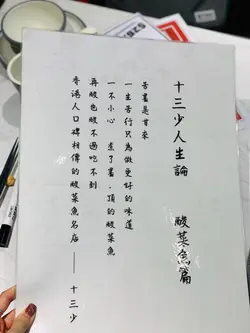 十三少人生論 酸菜魚篇
苦盡是甘來
一生苦行只為做更好的味道
一不小心 了 頂的酸菜魚
再酸也酸不過吃不到
香港人口碑相傳的酸菜魚名店 —— 十三少